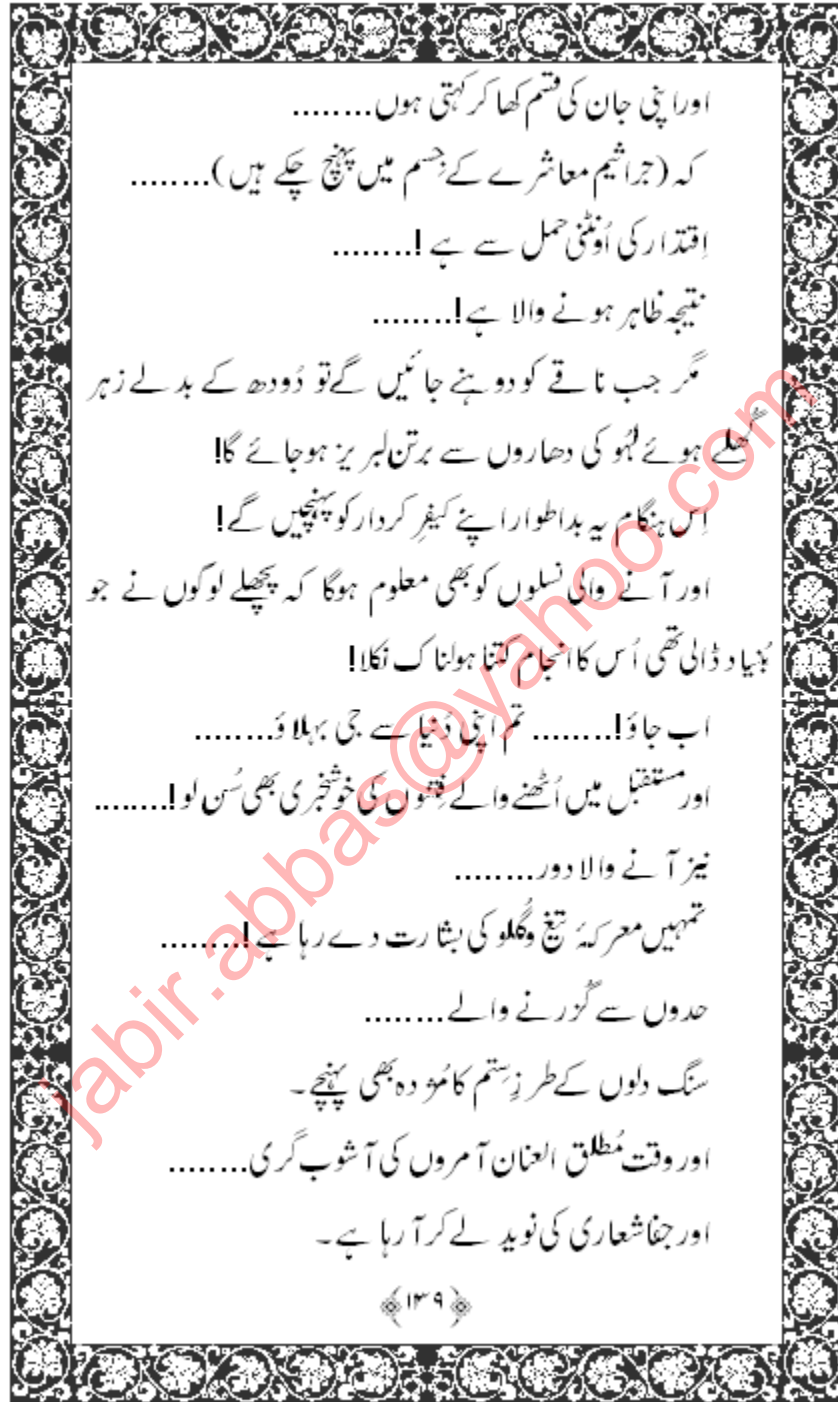 اور اپنی جان کی قسم کھا کر کہتی ہوں........
کہ (جراثیم معاشرے کے جِسم میں پہنچ چکے ہیں)........
اِقتدار کی اُونٹنی حمل سے ہے!........
نتیجہ ظاہر ہونے والا ہے!........
مگر جب ناقے کو دوہنے جائیں گے تو دُودھ کے بدلے زہر
گُھلے ہوئے لہُو کی دھاروں سے برتن لبریز ہوجائے گا!
اِس ہنگام یہ بداطوار اپنے کیفرِ کردار کو پہنچیں گے!
اور آنے والی نسلوں کو بھی معلوم ہوگا کہ پچھلے لوگوں نے جو
بُنیاد ڈالی تھی اُس کا انجام کتنا ہولناک نکلا!
اب جاؤ!........ تم اپنی دُنیا سے جی بہلاؤ........
اور مستقبل میں اُٹھنے والے فِتنوں کی خوشخبری بھی سُن لو!........
نیز آنے والا دور........
تمہیں معرکۂ تیغ وگُلو کی بشارت دے رہا ہے!........
حدوں سے گُزرنے والے........
سنگ دلوں کے طرزِ سِتم کا مُژدہ بھی پہنچے۔
اور وقت مُطلق العنان آمروں کی آشوب گری........
اور جفا شعاری کی نوید لے کر آ رہا ہے۔
﴿۱۳۹﴾
jabir.abbas@yahoo.com